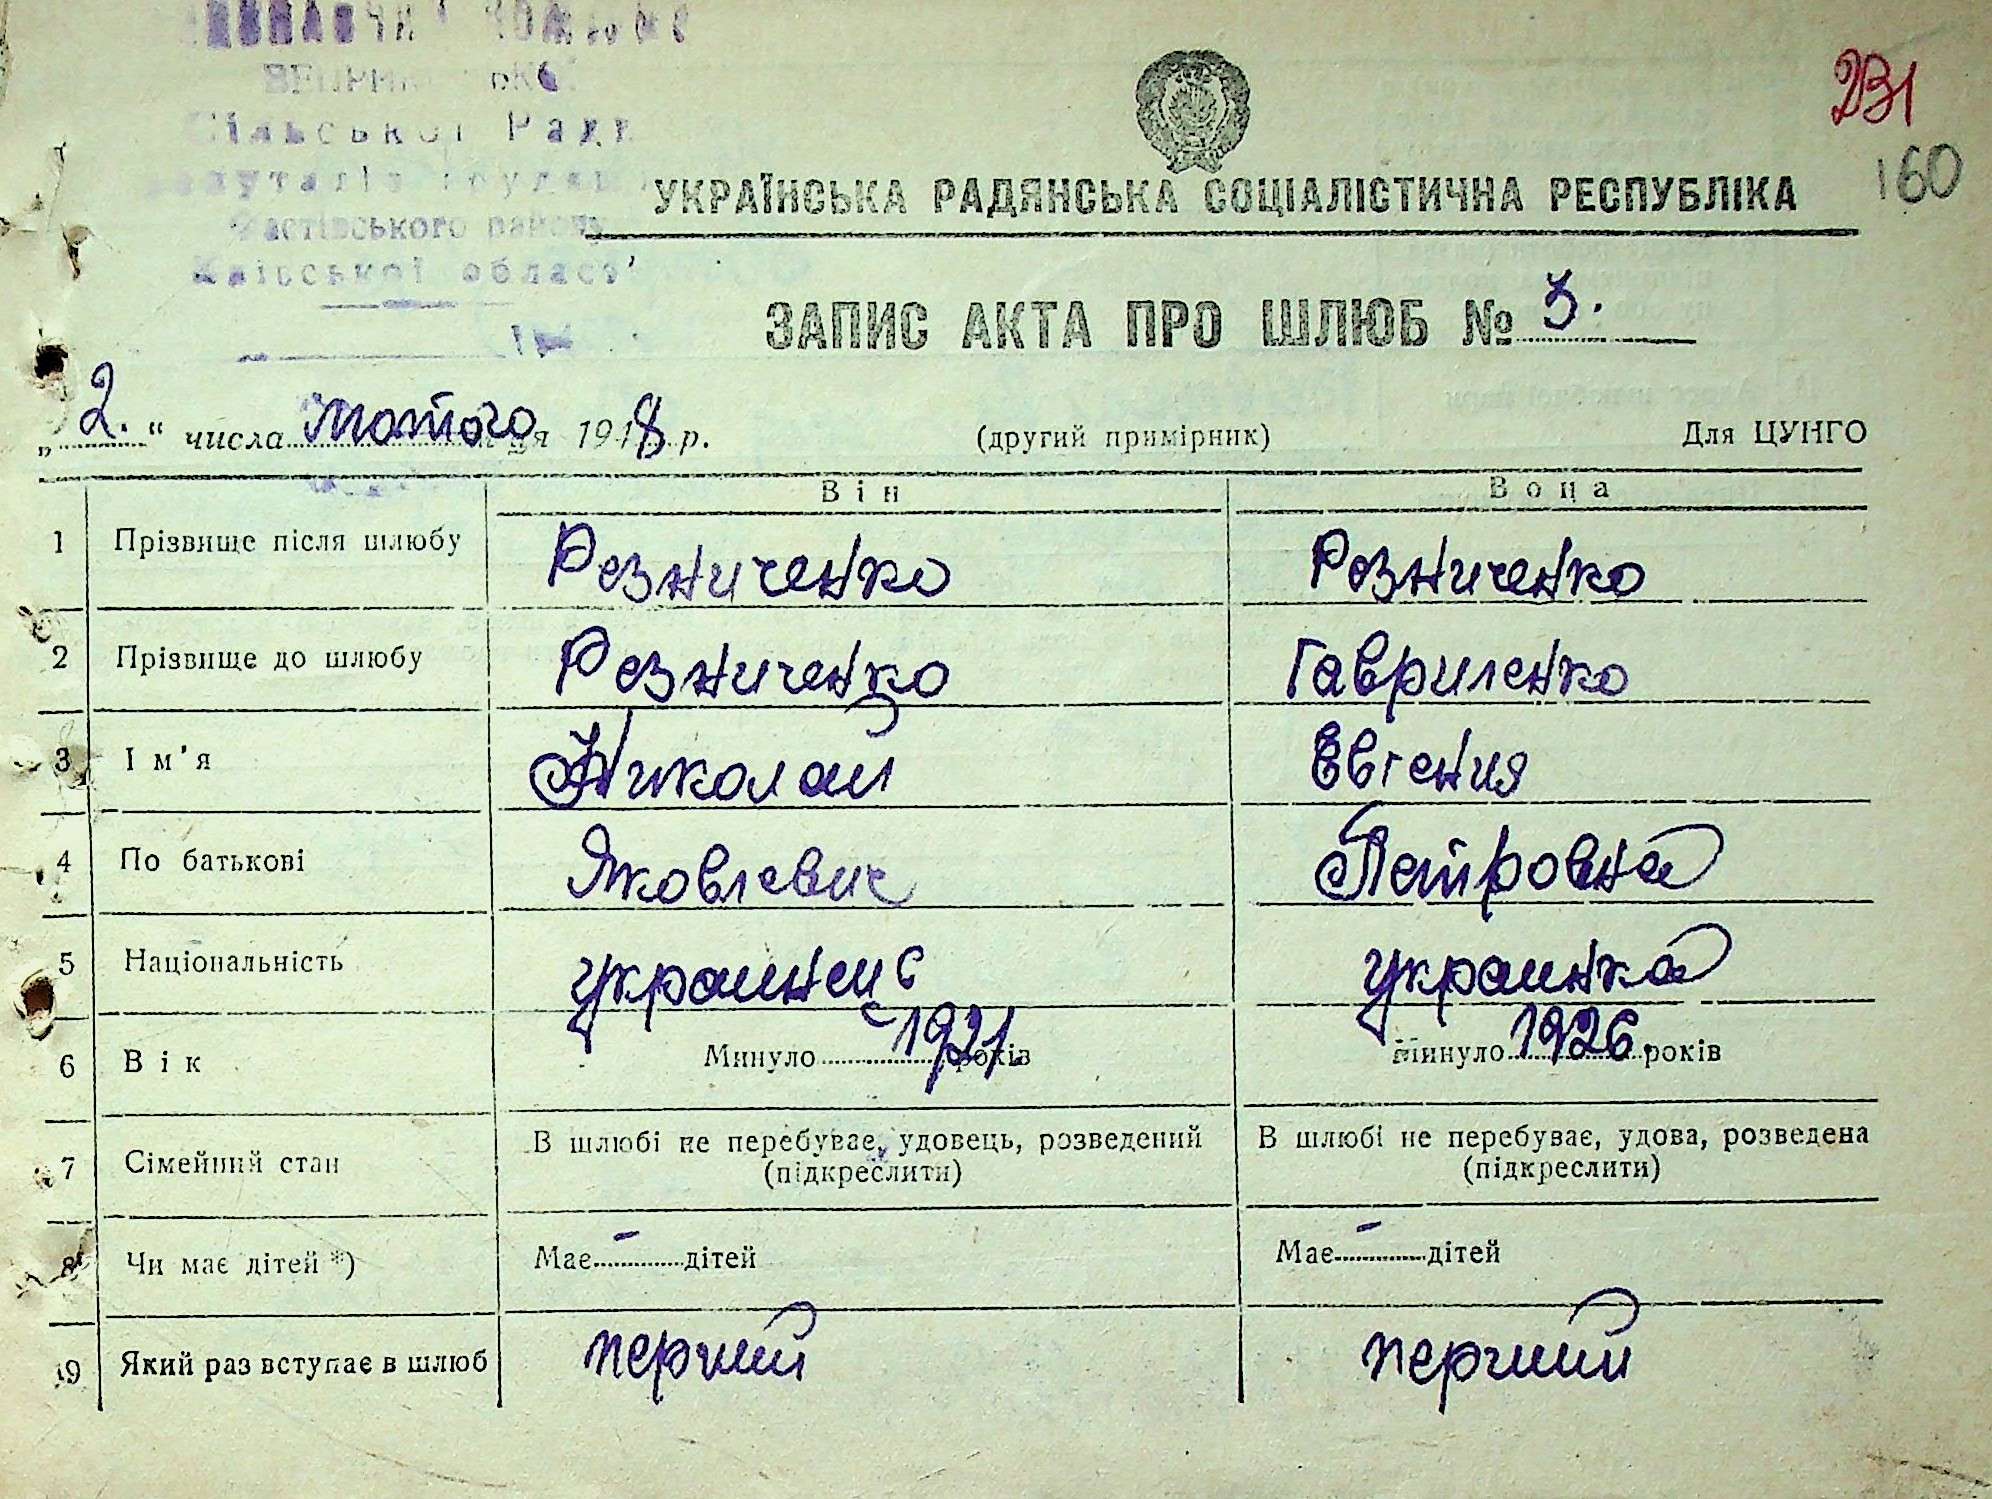 Сільської Ради
Фастівського району
Київської област
231
160
УКРАЇНСЬКА РАДЯНСЬКА СОЦІАЛІСТИЧНА РЕСПУБЛІКА
ЗАПИС АКТА ПРО ШЛЮБ №
„2.“ числа лютого 1948 р. (другий примірник) Для ЦУНГО
Він Вона
1 Прізвище після шлюбу Резниченко Резниченко
2 Прізвище до шлюбу Резниченко Гавриленко
3 Ім'я Николай Евгения
4 По батькові Яковлевич Петровна
5 Національність украинец украинка
6 Вік Минуло 1921 років Минуло 1926. років
7 Сімейний стан В шлюбі не перебуває, удовець, розведений В шлюбі не перебуває, удова, розведена
(підкреслити) (підкреслити)
8 Чи має дітей *) Має - дітей Має - дітей
9 Який раз вступає в шлюб перший перший